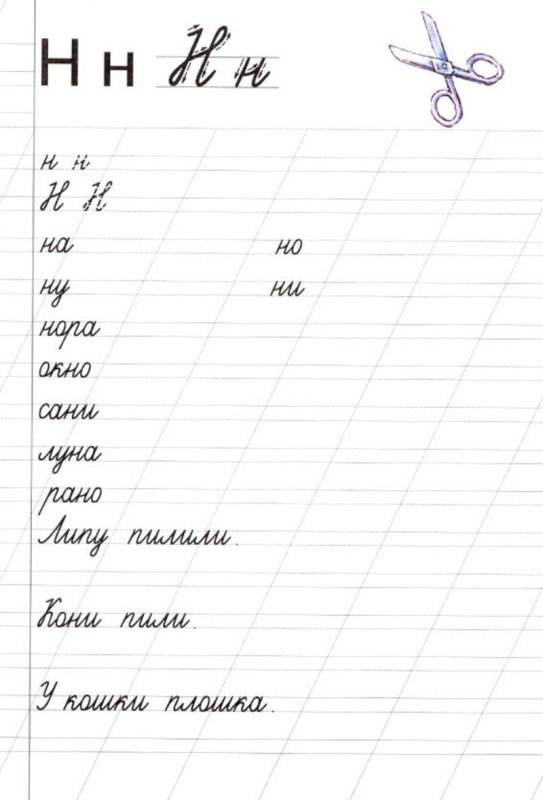 Н н Н н
н н
Н Н
на но
ну ни
нора
окно
сани
луна
рано
Липу пилили.
Кони пили.
У кошки плошка.